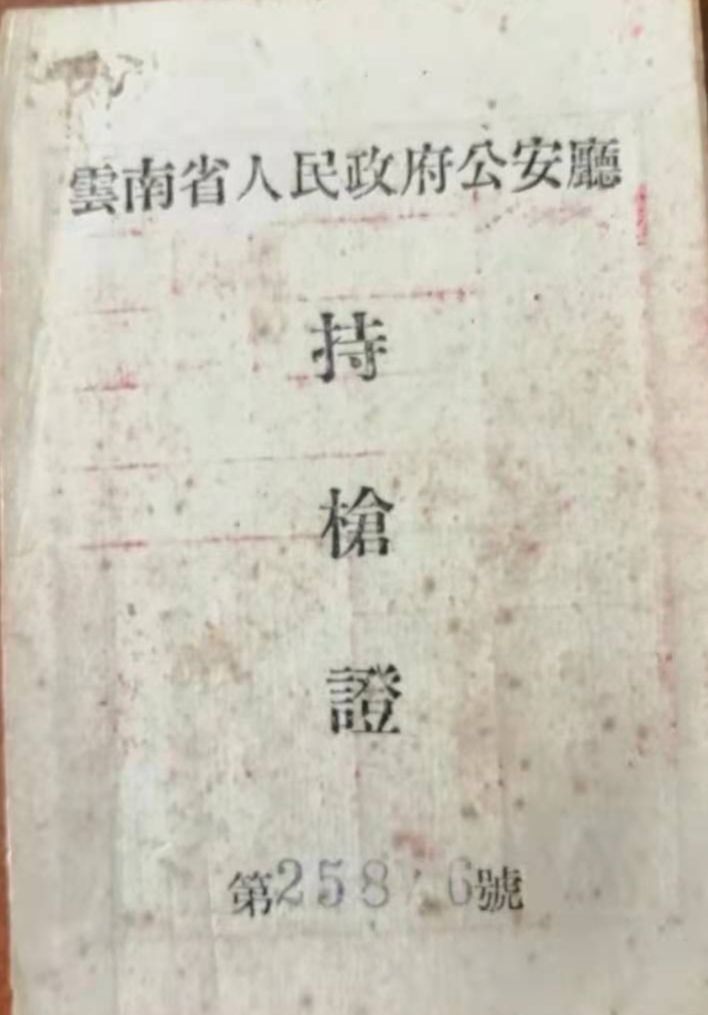 雲南省人民政府公安廳
持
槍
證
第258 6號